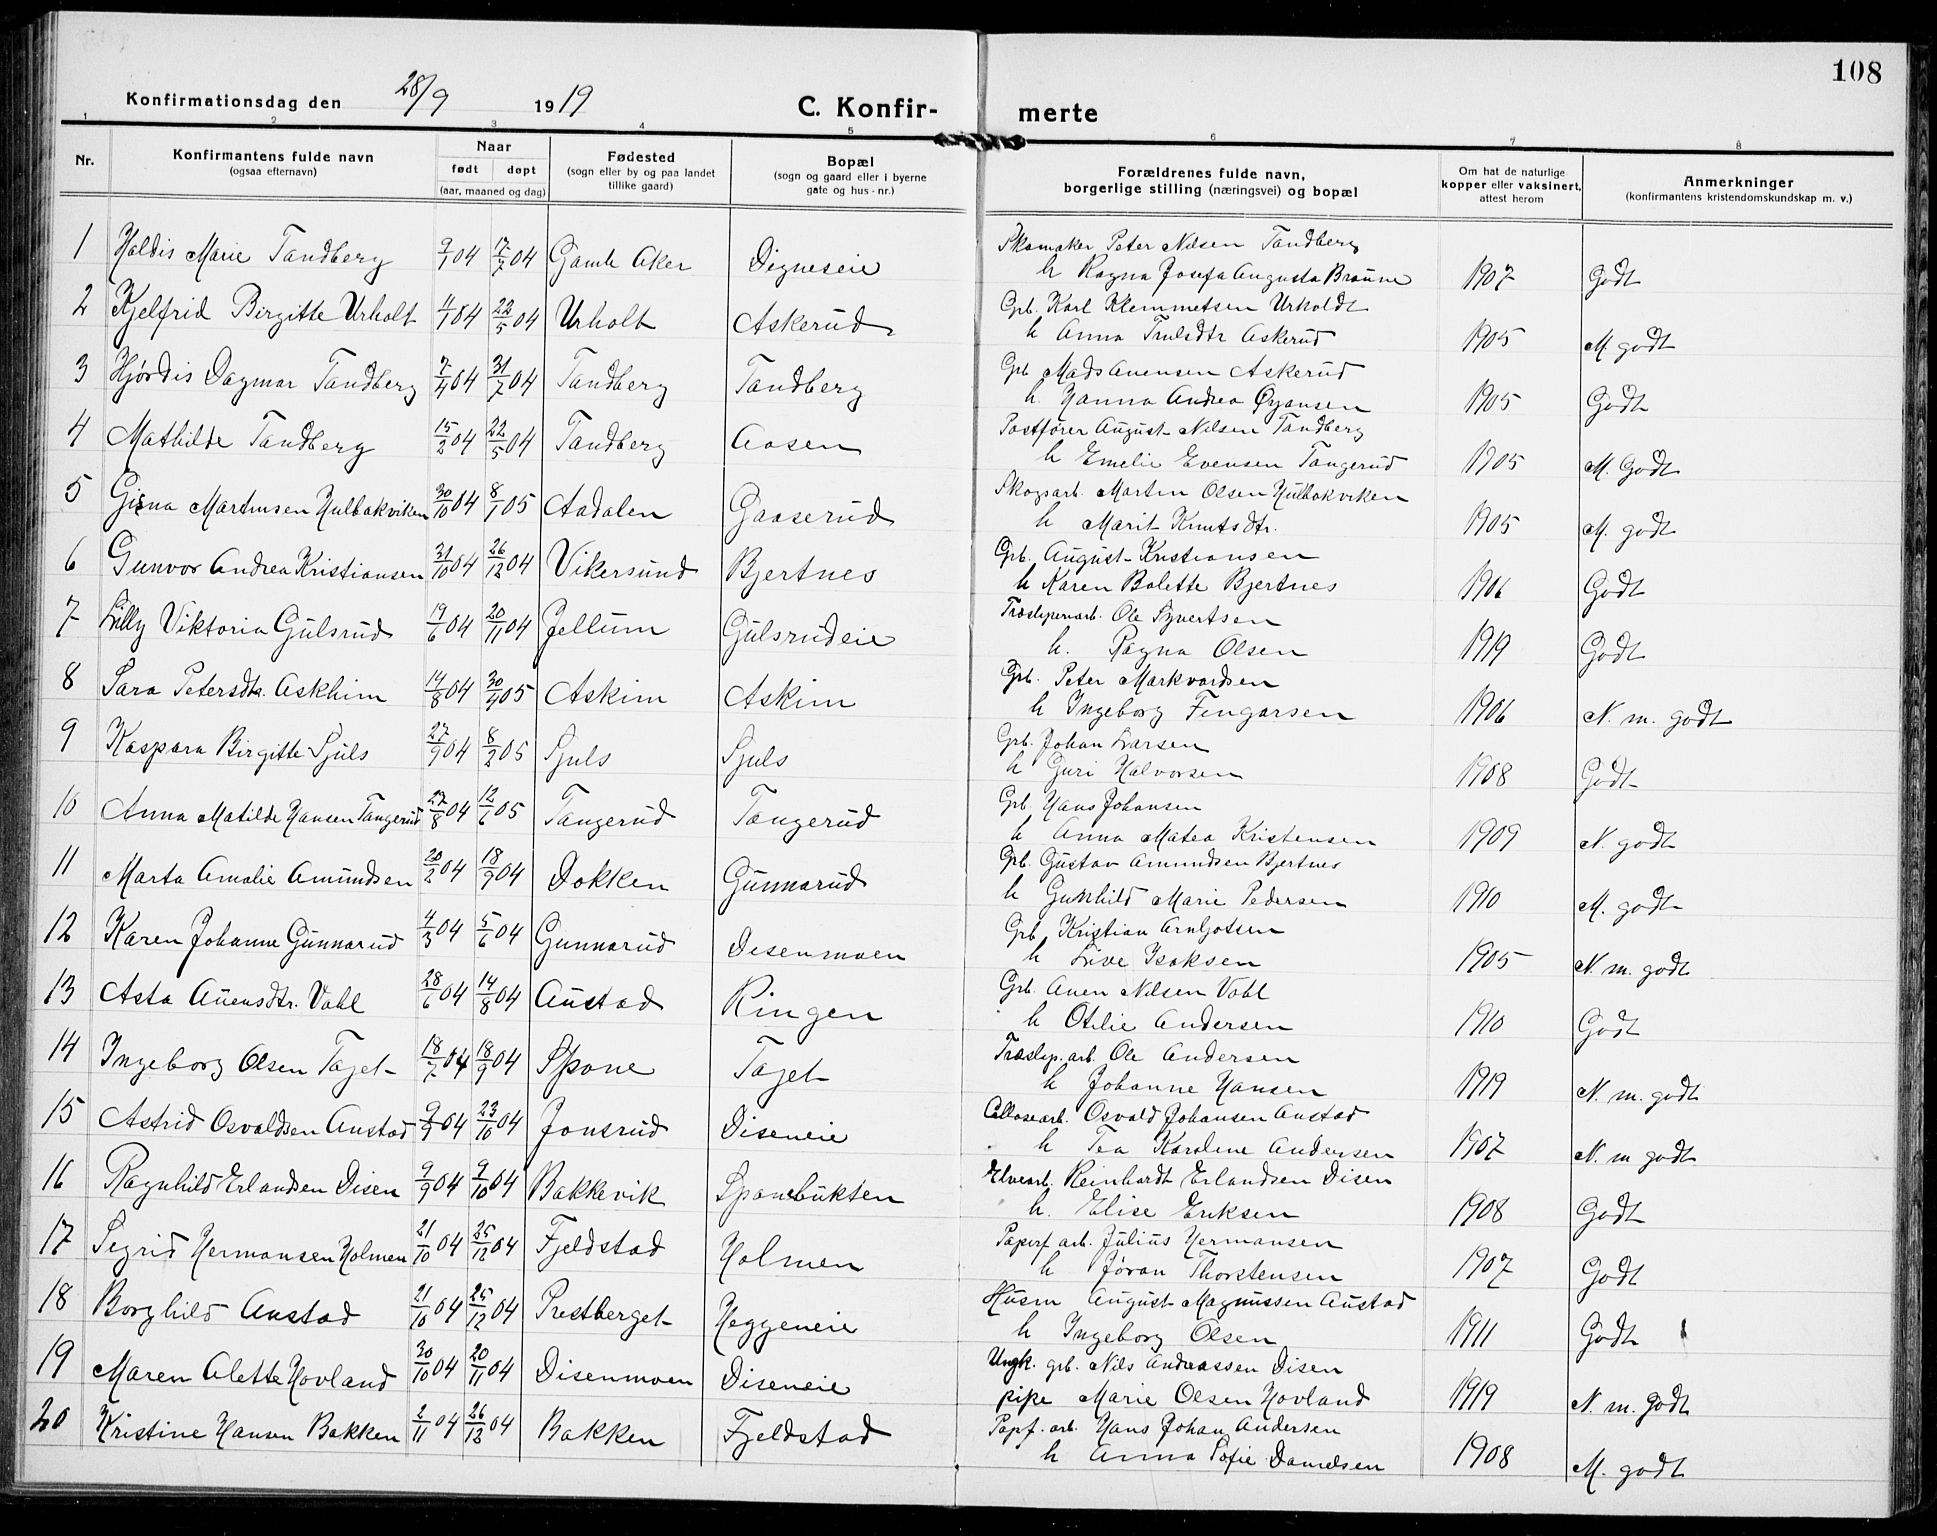 108
Konfirmationsdag den 28/9 1919 C. Konfir- merte
1 2 3 4 5 6 7 8
Nr. Konfirmantens fulde navn (ogsaa efternavn) Naar født døpt (aar, maaned og dag) Fødested (sogn eller by og paa landet tillike gaard) Bopæl (sogn og gaard eller i byerne gate og hus-nr.) Forældrenes fulde navn, borgerlige stilling (næringsvei) og bopæl Om hat de naturlige kopper eller vaksinert, attest herom Anmerkninger (konfirmantens kristendomskundskap m. v.)
1 Haldis Marie Tandberg 9/1 04 17/7 04 Gamle Aker Digneseie Skomaker Peter Nilsen Tandberg
h Ragna Josefa Augusta Braune 1907 Godt
2 Kjelfrid Birgitte Urholt 4/1 04 22/5 04 Urholt Askerud Grb. Karl Klemmetsen Urholdt
h Anna Trulsdtr Askerud 1905 M godt
3 Hjørdis Dagmar Tandberg 7/4 04 31/7 04 Tandberg Tandberg Grb Mads Auensen Askerud
h. Hanna Andrea Øyansen 1905 Godt
4 Mathilde Tandberg 15/2 04 22/5 04 Tandberg Aasen Postfører August Nilsen Tandberg
h Emelie Evensen Tangerud 1905 M. Godt
5 Gisna Martinsen Hulbakviken 30/10 04 8/1 05 Aadalen Gaaserud Skogsarb. Martin Olsen Hulbakviken
h Marit Knutsdtr. 1905 M. godt
6 Gunvor Andrea Kristiansen 31/10 04 26/12 04 Vikersund Bjertnes Grb. August Kristiansen
h Karen Bolette Bjertnes 1906 Godt
7 Lilly Viktoria Gulsrud 19/6 04 20/11 04 Jellum Gulsrudeie Træsliperiarb. Ole Syvertsen
h. Ragna Olsen 1919 Godt
8 Sara Petersdtr. Askhim 14/8 04 30/4 05 Askim Askim Grb. Peter Markvardsen
h Ingeborg Fingarsen 1906 N. m. godt
9 Kaspara Birgitte Sjuls 27/9 04 8/2 05 Sjuls Sjuls Grb. Johan Larsen
h Guri Halvorsen 1908 Godt
10 Anna Matilde Hansen Tangerud 27/8 04 12/6 05 Tangerud Tangerud Grb. Hans Johansen
h Anna Matea Kristensen 1909 N. godt
11 Marta Amalie Amundsen 20/2 04 18/9 04 Dokken Gunnarud Grb. Gustav Amundsen Bjertnes
h Gunhild Marie Pedersen 1910 M. godt
12 Karen Johanne Gunnarud 4/3 04 5/6 04 Gunnarud Disenmoen Grb Kristian Arnljotsen
h Live Isaksen 1905 N. m. godt
13 Asta Auensdtr. Vahl 28/6 04 14/8 04 Austad Ringen Grb. Auen Nilsen Vahl
h Otilie Andersen 1910 Godt
14 Ingeborg Olsen Taget 18/7 04 18/9 04 Spone Taget Træslip. arb. Ole Andersen
h Johanne Hansen 1919 N. m. godt
15 Astrid Osvaldsen Austad 9/9 04 23/10 04 Jonsrud Diseneie Cellosearb. Osvald Johansen Austad
h Tea Karoline Andersen 1907 N. m godt
16 Ragnhild Erlandsen Disen 9/9 04 9/10 04 Bakkevik Sponebukten Elvearb. Reinhardt Erlandsen Disen
h. Elise Eriksen 1908 Godt
17 Sigrid Hermansen Holmen 21/10 04 25/12 04 Fjeldstad Holmen Papirf arb. Julius Hermansen
h Jøran Thorstensen 1907 Godt
18 Borghild Austad 21/10 04 25/12 04 Prestberget Heggeneie Husm August Magnussen Austad
h Ingeborg Olsen 1911 Godt
19 Maren Alette Hovland 30/10 04 20/11 04 Disenmoen Diseneie Ungk. grb. Nils Andreassen Disen
pike Marie Olsen Hovland 1919 N. m. godt
20 Kristine Hansen Bakken 2/11 04 26/12 04 Bakken Fjeldstad Papf. arb. Hans Johan Andersen
h Anna Sofie Danielsen 1908 M. godt